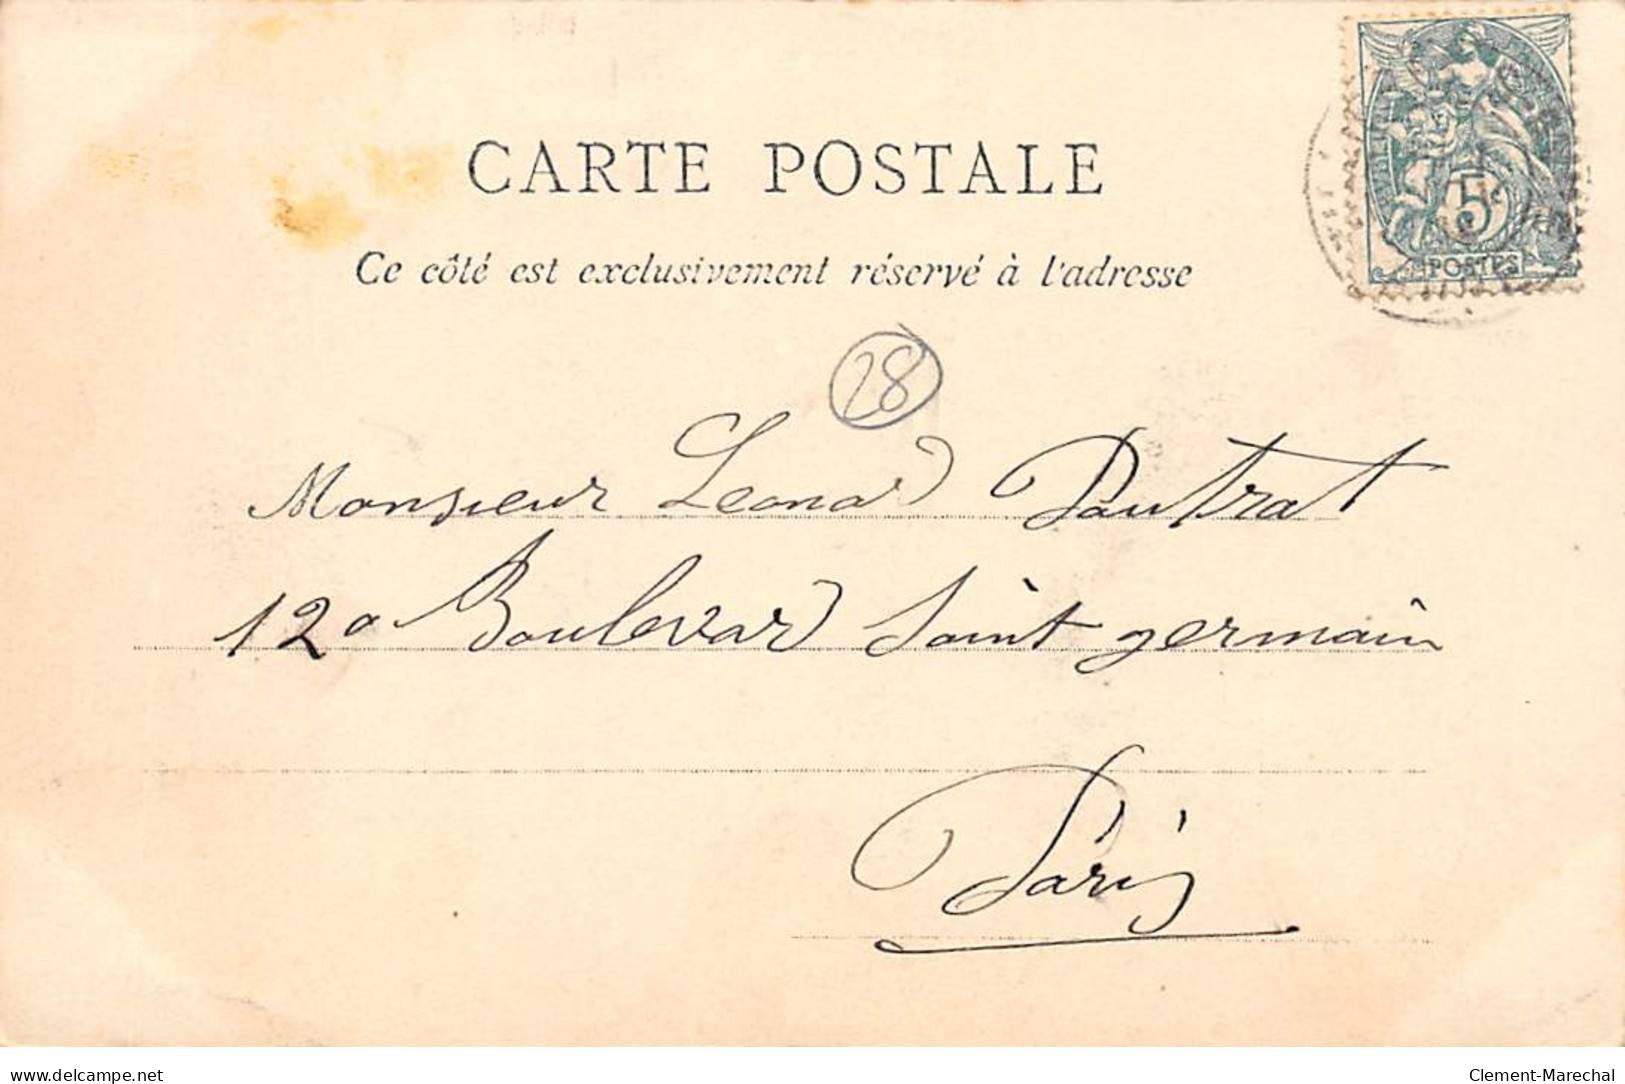 CARTE POSTALE
Ce côté est exclusivement réservé à l'adresse
5
POSTES
28
Monsieur Leonard Pautrat
120 Boulevard Saint germain
Paris
delcampe.net
Clement-Marechal